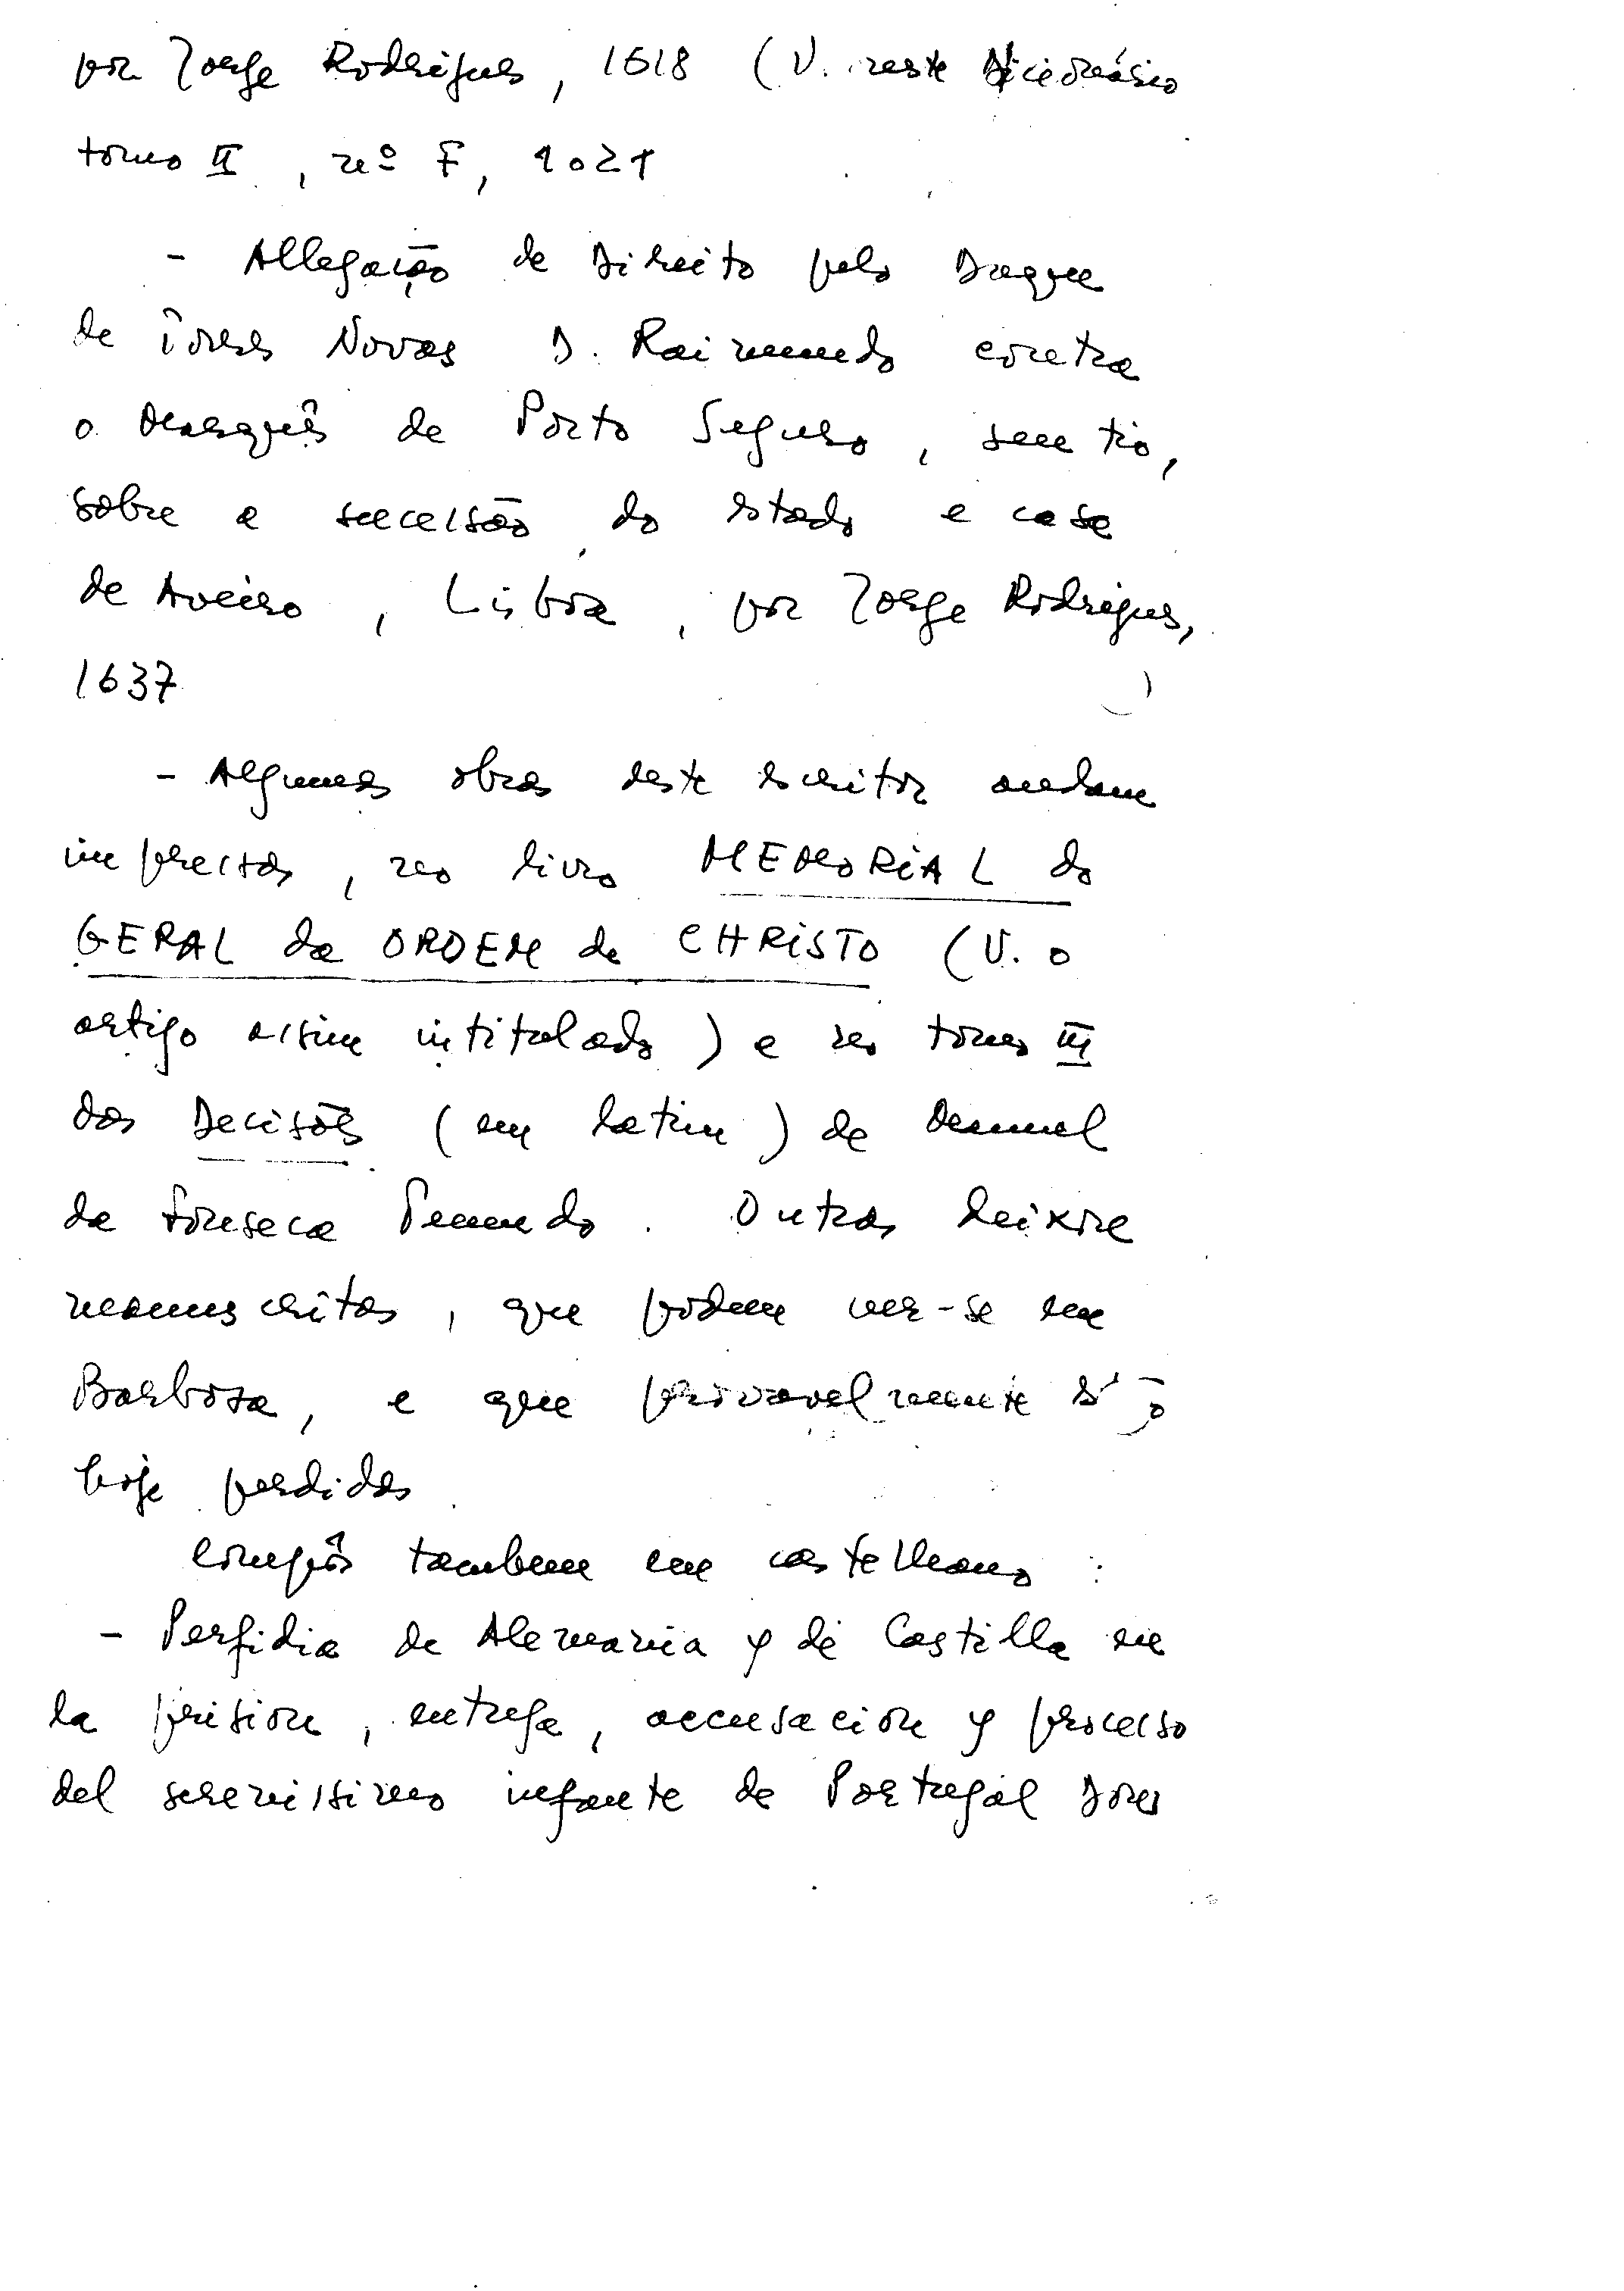 por Jorge Rodrigues, 1618 (V. neste Dicionário
tomo II, nº F, 1021
- Allegação de Direito pelo Duque
de Torres Novas D. Raimundo contra
o Marquês de Porto Seguro, seu tio,
sobre a sucessão do estado e casa
de Aveiro, Lisboa, por Jorge Rodrigues,
1637
- Algumas obras deste escritor andam
impressas, no livro MEMORIAL do
GERAL da ORDEM de CHRISTO (V. o
artigo assim intitulado) e no tomo III
das Decisões (em latim) de Manuel
da Fonseca Themudo. Outras deixou
manuscritas, que podem ver-se em
Barbosa, e que provavelmente são
hoje perdidas
Compôs tambem em castelhano:
- Perfidia de Alemania y de Castilla en
la prision, entrega, accusacion y processo
del serenissimo infante de Portugal Dom